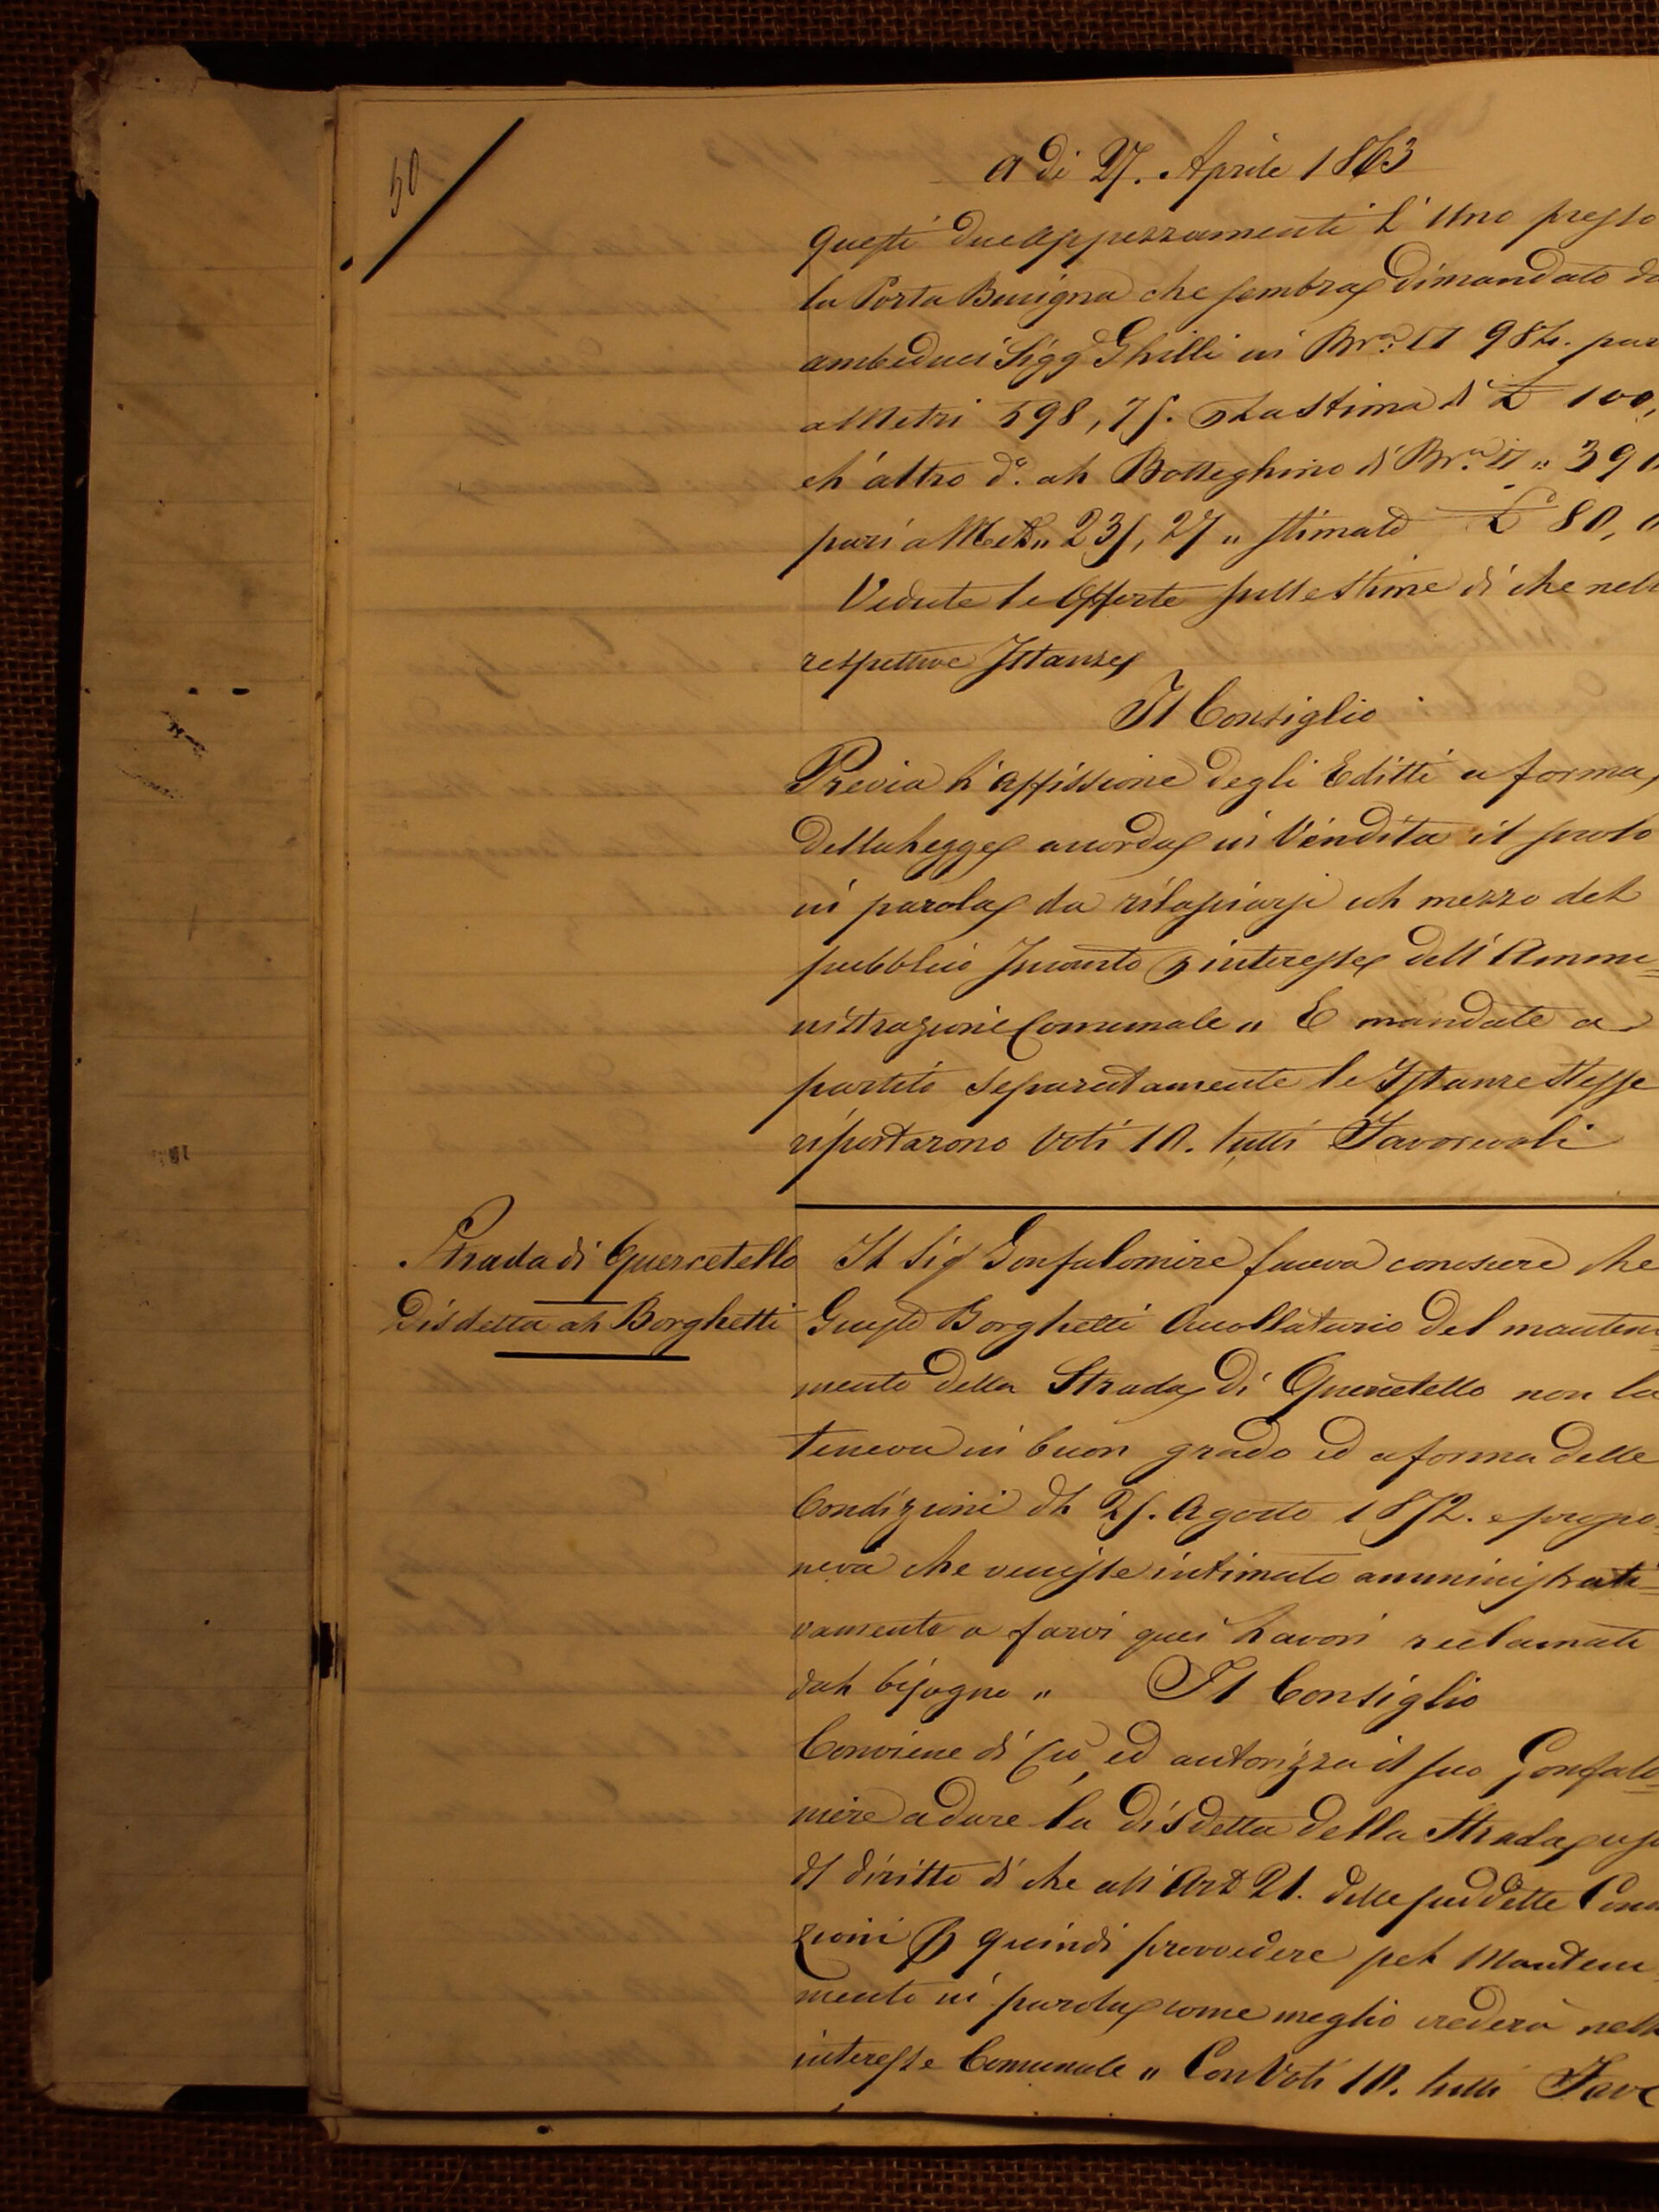 50
a dì 27. Aprile 1863
questi due Appezzamenti L'Uno presso
la Porta Burigna che sembra dimandato da
ambeduei Sigg Ghilli in Bra: 984. par
a Metri 598,75. La stima di £ 100,
e L'altro do. al Botteghino di Bra " 390
pari a Met " 235,27 " stimato £ 80,0
Vedute le Offerte sulle stime di che nell
respettive Istanze
Il Consiglio
Previa L'affissione degli Editti a forma
della Legge accorda in Vendita il suolo
in parola da rilasciarsi col mezzo del
pubblico Incanto interesse dell'Ammi=
nistrazione Comunale " E mandate a
partito separatamente le Istanze stesse
riportarono Voti 10. tutti Favorevoli
Strada di Quercetello
Disdetta al Borghetti
Il Sig Gonfaloniere faceva conoscere che
Giusto Borghetti Accollatario del manteni=
mento della Strada di Quercetello non la
teneva in buon grado ed a forma delle
Condizioni dl 25. Agosto 1852. e propo=
neva che venisse intimato amministrati=
vamente a farvi quei Lavori reclamati
dal bisogno " Il Consiglio
Conviene di ciò, ed autorizza il suo Gonfalo=
niere a dare la disdetta della Strada
diritto di che all'Art 21. delle suddette Cond
zioni quindi provvedere pel Manteni
mento in parola come meglio crederà nell
interesse Comunale " Con Voti 10. tutti Favo